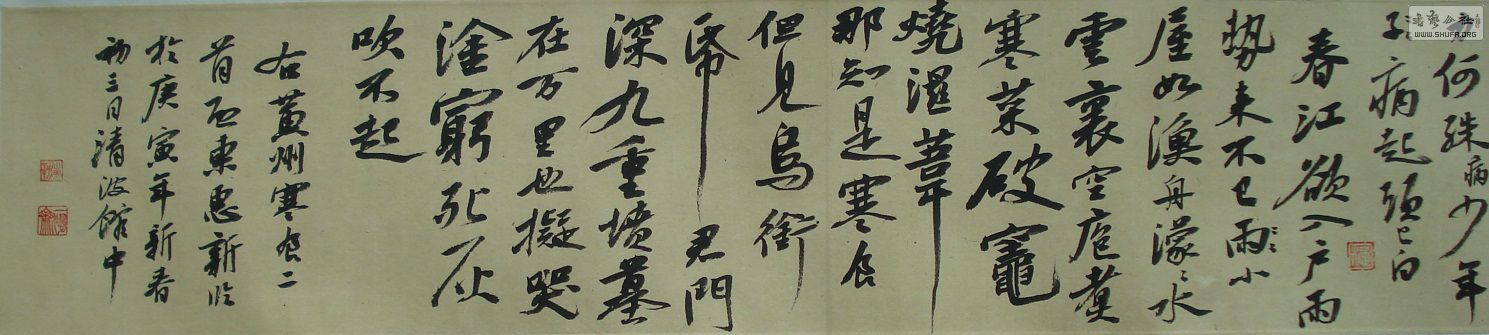 何殊病少年
子病起頭已白
春江欲入戶雨
勢来不已雨〻小
屋如漁舟濛〻水
雲裏空庖煮
寒菜破竈
燒濕葦
那知是寒食
但見烏銜
帋 君門
深九重墳墓
在万里也擬哭
塗窮死灰
吹不起
右黃州寒食二
首
於庚寅年新春
初三日清波館中
WWW.SHUFA.ORG